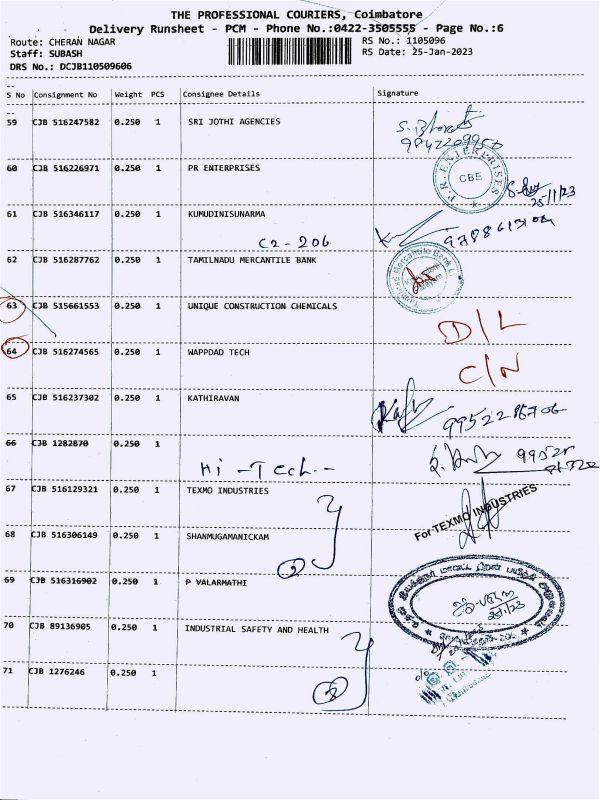 THE PROFESSIONAL COURIERS, Coimbatore
Delivery Runsheet - PCM - Phone No.:0422-3505555 - Page No.:6
Route: CHERAN NAGAR RS No.: 1105096
Staff: SUBASH RS Date: 25-Jan-2023
DRS No.: DCJB110509606
S No Consignment No Weight PCS Consignee Details Signature
59 CJB 516247582 0.250 1 SRI JOTHI AGENCIES
60 CJB 516226971 0.250 1 PR ENTERPRISES
P.R. ENTERPRISES
CBE
25/1/23
61 CJB 516346117 0.250 1 KUMUDINISUNARMA
C2-206
62 CJB 516287762 0.250 1 TAMILNADU MERCANTILE BANK
Tamilnad Mercantile Bank
63 CJB 515661553 0.250 1 UNIQUE CONSTRUCTION CHEMICALS D/L
64 CJB 516274565 0.250 1 WAPPDAD TECH C/N
65 CJB 516237302 0.250 1 KATHIRAVAN
66 CJB 1282870 0.250 1
Hi-Tech
67 CJB 516129321 0.250 1 TEXMO INDUSTRIES
For TEXMO INDUSTRIES
68 CJB 516306149 0.250 1 SHANMUGAMANICKAM
2
69 CJB 516316902 0.250 1 P VALARMATHI
70 CJB 89136905 0.250 1 INDUSTRIAL SAFETY AND HEALTH
71 CJB 1276246 0.250 1